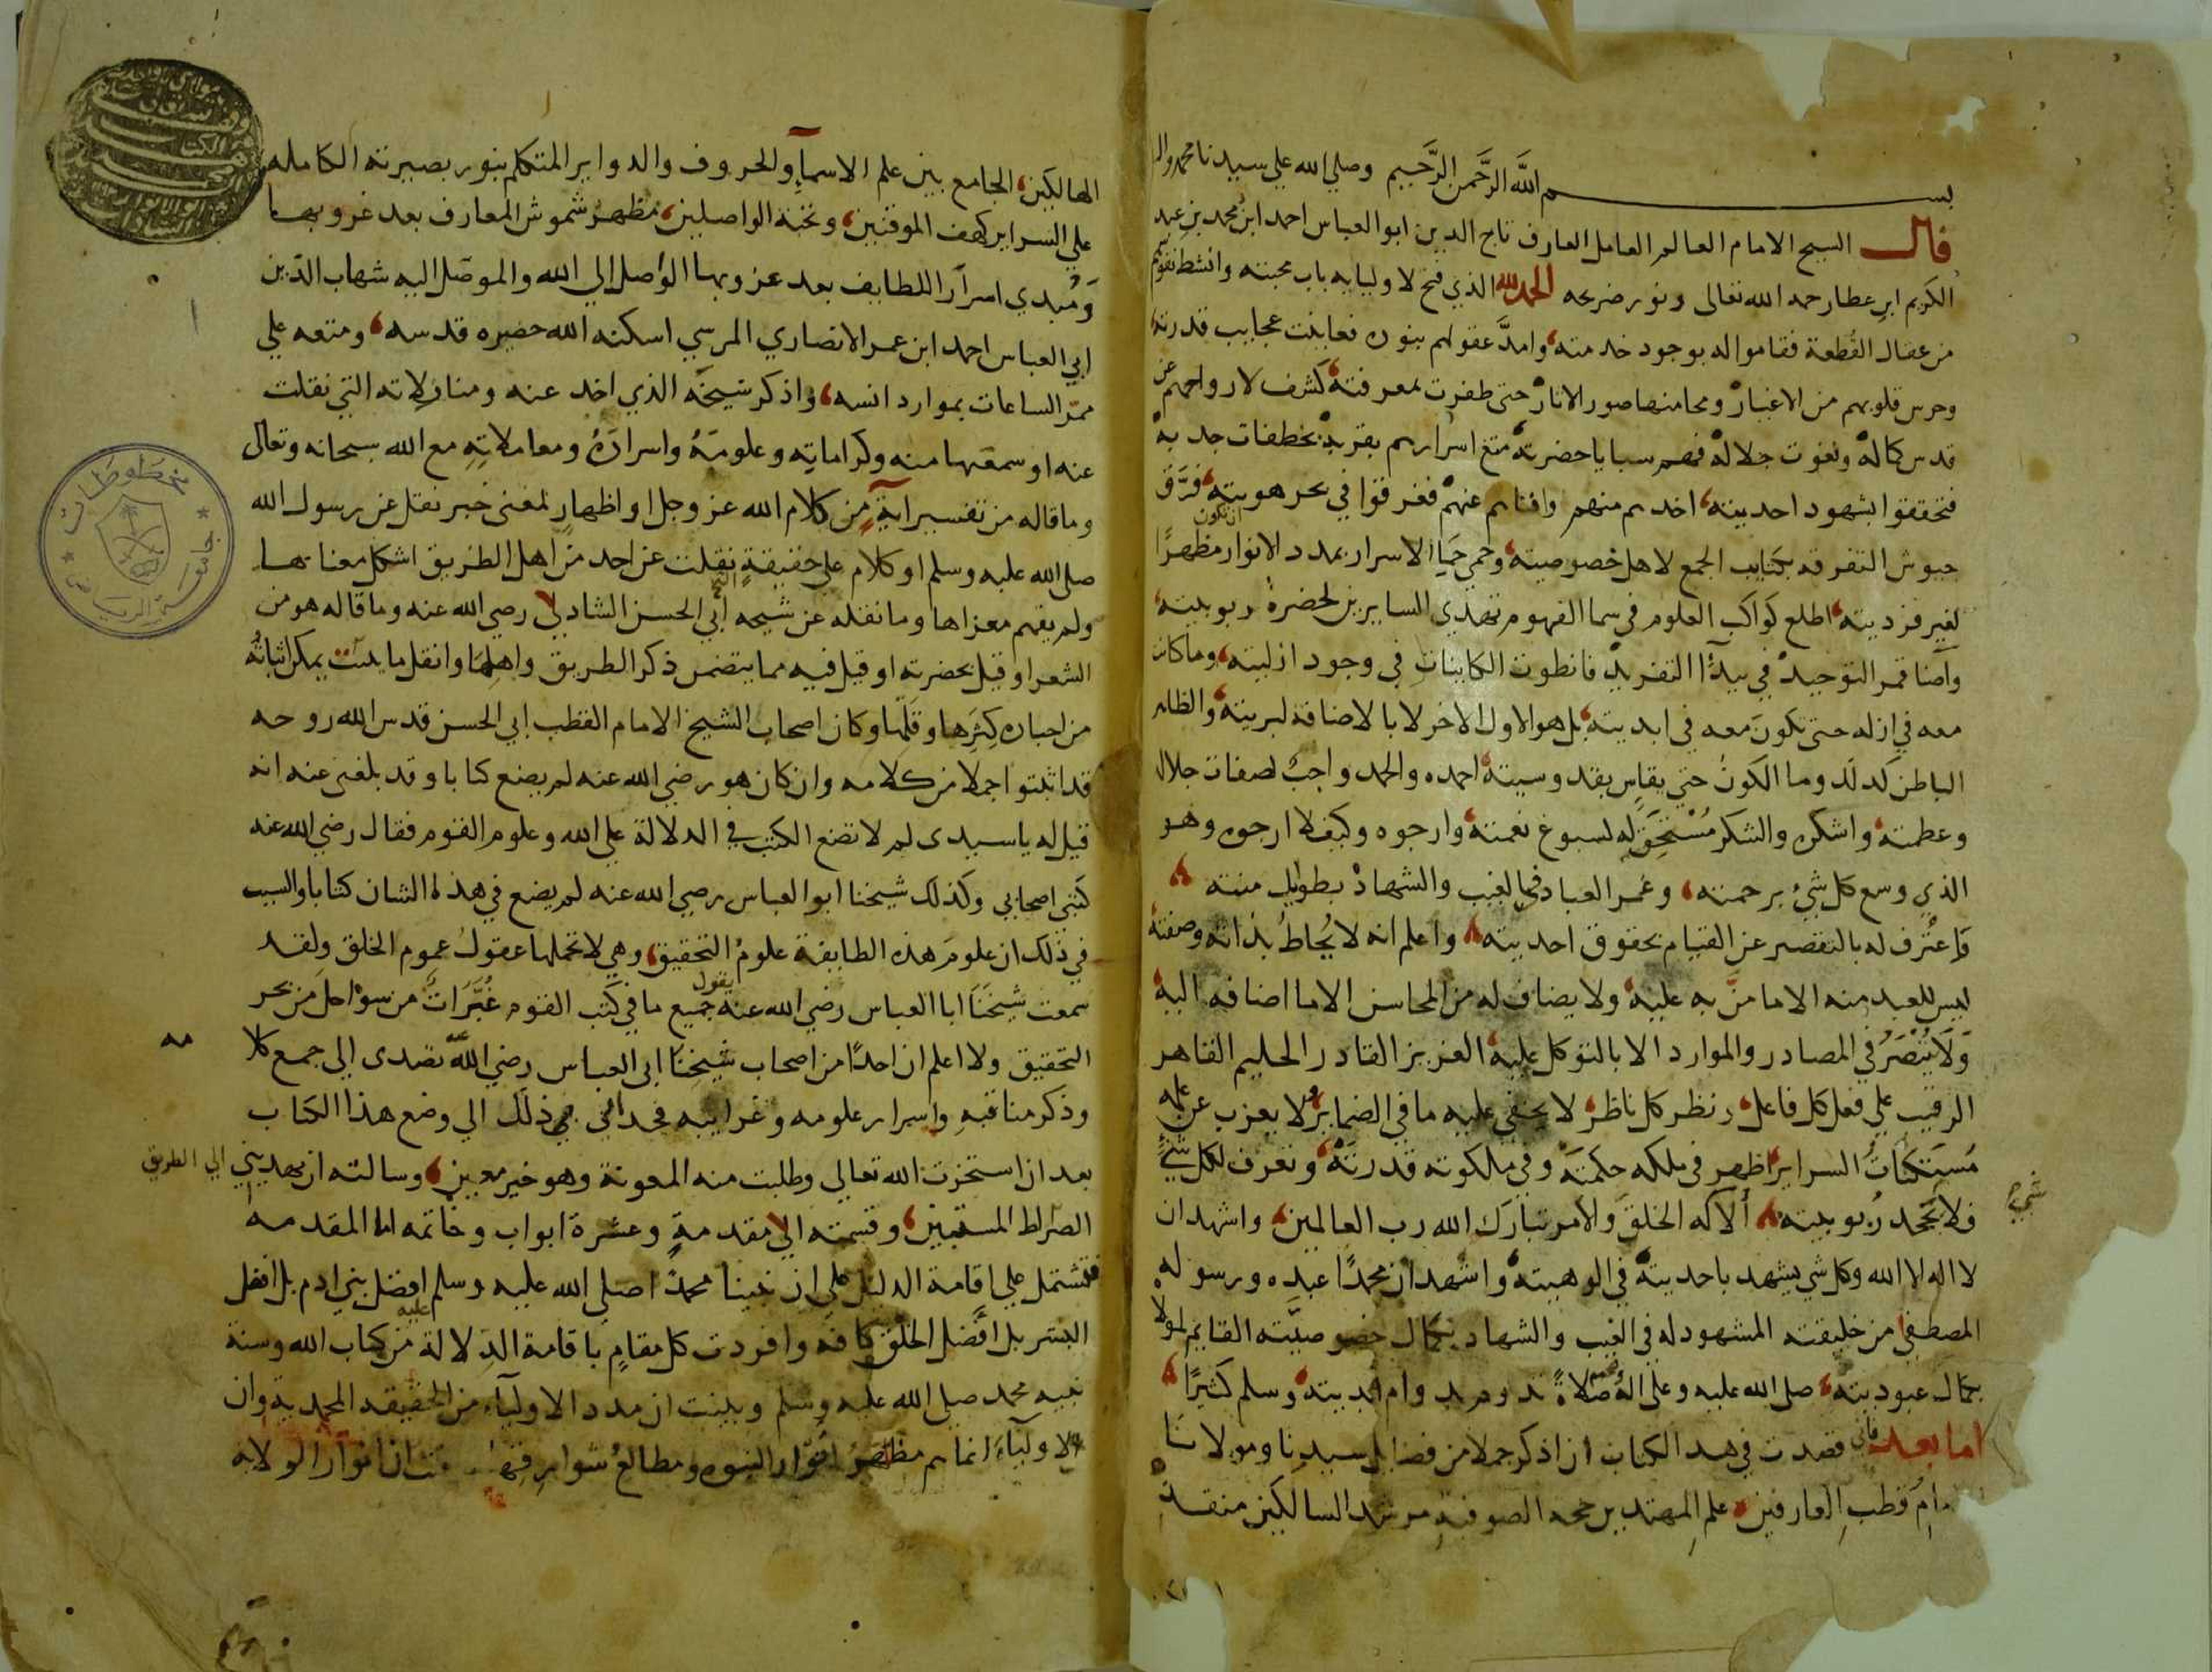 بسم الله الرَّحمن الرَّحيم وصلي الله علي سيدنا محمد واله
قال الشيخ الامام العالم العامل العارف تاج الدين ابو العباس احمد ابن محمد بن عبد
الكريم ابن عطا رحمه الله تعالى ونور ضريحه الحمد لله الذي فتح لاوليايه باب محبته وانشط نفوسهم
من عقال القطعة فقاموا له بوجود خدمته وامدَّ عقولهم بنوره فعاينت عجايب قدرته
وحرس قلوبهم من الاغيار ومحا منها صور الاثار حتى ظفرت بمعرفته كشف لارواحهم عن
قدس كماله ونعوت جلاله فهم سبايا حضرته متع اسرارهم بقربه بخطفات جذبه
فتحققوا بشهود احديته اخذهم منهم وافناهم عنهم فغرقوا في بحر هويته فرَّق
جيوش التفرقه بكتايب الجمع لاهل خصوصيته وحمي حما الاسرار بمدد الانوار ان تكون مظهرًا
لغير فرديته اطلع كواكب العلوم في سما الفهوم تهدي السايرين لحضرة ربوبيته
واضا قمر التوحيد في بيدآ التفريد فانطوت الكاينات في وجود ازليته وما كان
معه في ازله حتى يكون معه في ابديته بل هو الاول الاخر لا بالاضافة لبريته والظاهر
الباطن كذلك وما الكون حتى يقاس بقدوسيته احمده والحمد واجب لصفات جلاله
وعظمته واشكره والشكر مُسْتَحَق له لسبوغ نعمته وارجوه وكيف لا ارجوه وهو
الذي وسع كل شيء برحمته وغمر العباد في الغيب والشهاد بطوايل منته
واعترف له بالتقصير عن القيام بحقوق احديته واعلم انه لا يُحاط بذاته وصفته
ليس للعبد منه الا ما منَّ به عليه ولا يضاف له من المحاسن الا ما اضافه اليه
وَلَا يُنْصَرُ في المصادر والموارد الا بالتوكل عليه العزيز القادر الحليم القاهر
الرقيب علي فعل كل فاعل ونظر كل ناظر لا يخفي عليه ما في الضماير ولا يعزب عن علمه
مُستكنات السراير اظهر في ملكه حكمته وفي ملكوته قدرته وتعرف لكل شيء
فلا يجحد ربوبيته ألا له الخلق والامر تبارك الله رب العالمين واشهد ان
لا اله الا الله وكل شي يشهد باحديته في الوهيته واشهد ان محمدًا عبده ورسوله
المصطفي من خليقته المشهود له في الغيب والشهاد بكمال خصوصيته القايم لمولاه
بكمال عبوديته صلى الله عليه وعلى اله صلاةً تدوم بدوام ابديته وسلم كثيرًا
اما بعد فاني قصدت في هذا الكتاب ان اذكر جملا من فضايل سيدنا ومولانا
قطب العارفين علم المهتدين حجه الصوفيه مرشد السالكين منقذ
الهالكين الجامع بين علم الاسمآ والحروف والدواير المتكلم بنور بصيرته الكامله
علي السراير كهف الموقنين ونخبة الواصلين مظهر شموش المعارف بعد غروبها
وَمُبدي اسرار اللطايف بعد عزوبها الواصل الي الله والموصّل اليه شهاب الدين
ابي العباس احمد ابن عمر الانصاري المرسي اسكنه الله حضيره قدسه ومتعه علي
ممرّ الساعات بموارد انسه واذكر شيخه الذي اخذ عنه ومنازلاته التي نقلت
عنه او سمعها منه وكراماته وعلومهُ واسرارهُ ومعاملاتِهِ مع الله سبحانه وتعالى
وما قاله من تفسير آيةٍ من كلام الله عز وجل او اظهارٍ لمعنى خبر نقل عن رسول الله
صلى الله عليه وسلم او كلام على حقيقةٍ نقلت عن احد من اهل الطريق اشكل معناها
ولم يفهم مغزاها وما نقله عن شيخه الشيخ أبي الحسن الشادلي رضي الله عنه وما قاله هو من
الشعر او قيل بحضرته او قيل فيه مما يتضمن ذكر الطريق واهلها وانقل ما يمكن اثباتُه
من اخباره كِثَرها وقلَّها وكان اصحاب الشيخ الامام القطب ابي الحسن قدس الله روحه
قد اثبتوا جملا من كلامه وان كان هو رضي الله عنه لم يضع كتابا وقد بلغني عنه انه
قيل له يا سيدي لم لا تضع الكتب في الدلالة علي الله وعلوم القوم فقال رضي الله عنه
كتبي اصحابي وكذلك شيخنا ابو العباس رضي الله عنه لم يضع في هذا الشان كتابا والسبب
في ذلك ان علوم هذه الطايفة علوم التحقيق وهي لا تحملها عقول عموم الخلق ولقد
سمعت شيخَنَا ابا العباس رضي الله عنه يقول جميع ما في كتب القوم عَبَرَات من سواحل من بحر
التحقيق ولا اعلم ان احدًا من اصحاب شيخنا ابي العباس رضي الله تصدى الي جمع كلا
مه
وذكر مناقبه واسرار علومه وغرايبه فحداني ذلك الي وضع هذا الكتاب
بعد ان استخرت الله تعالى وطلبت منه المعونة وهو خير معين وسالته ان يهديني الي الطريق
الصراط المستقيم وقسمته الي مقدمةٍ وعشرة ابواب وخاتمه اما المقدمه
فتشتمل علي اقامة الدليل على ان نبينا محمدًا صلى الله عليه وسلم افضل بني ادم بل افضل
البشر بل أفضل الخلق كافه وافردت كل مقامٍ باقامة الدلالة عليه من كتاب الله وسنة
نبيه محمد صلى الله عليه وسلم وبينت ان مدد الاوليآء من الحقيقه المحمدية وان
الاوليآء انما هم مظاهرُ انوار النبوه ومطالع شوارقها انوار الولايه
جامعة الرياض
مخطوطات
شيء